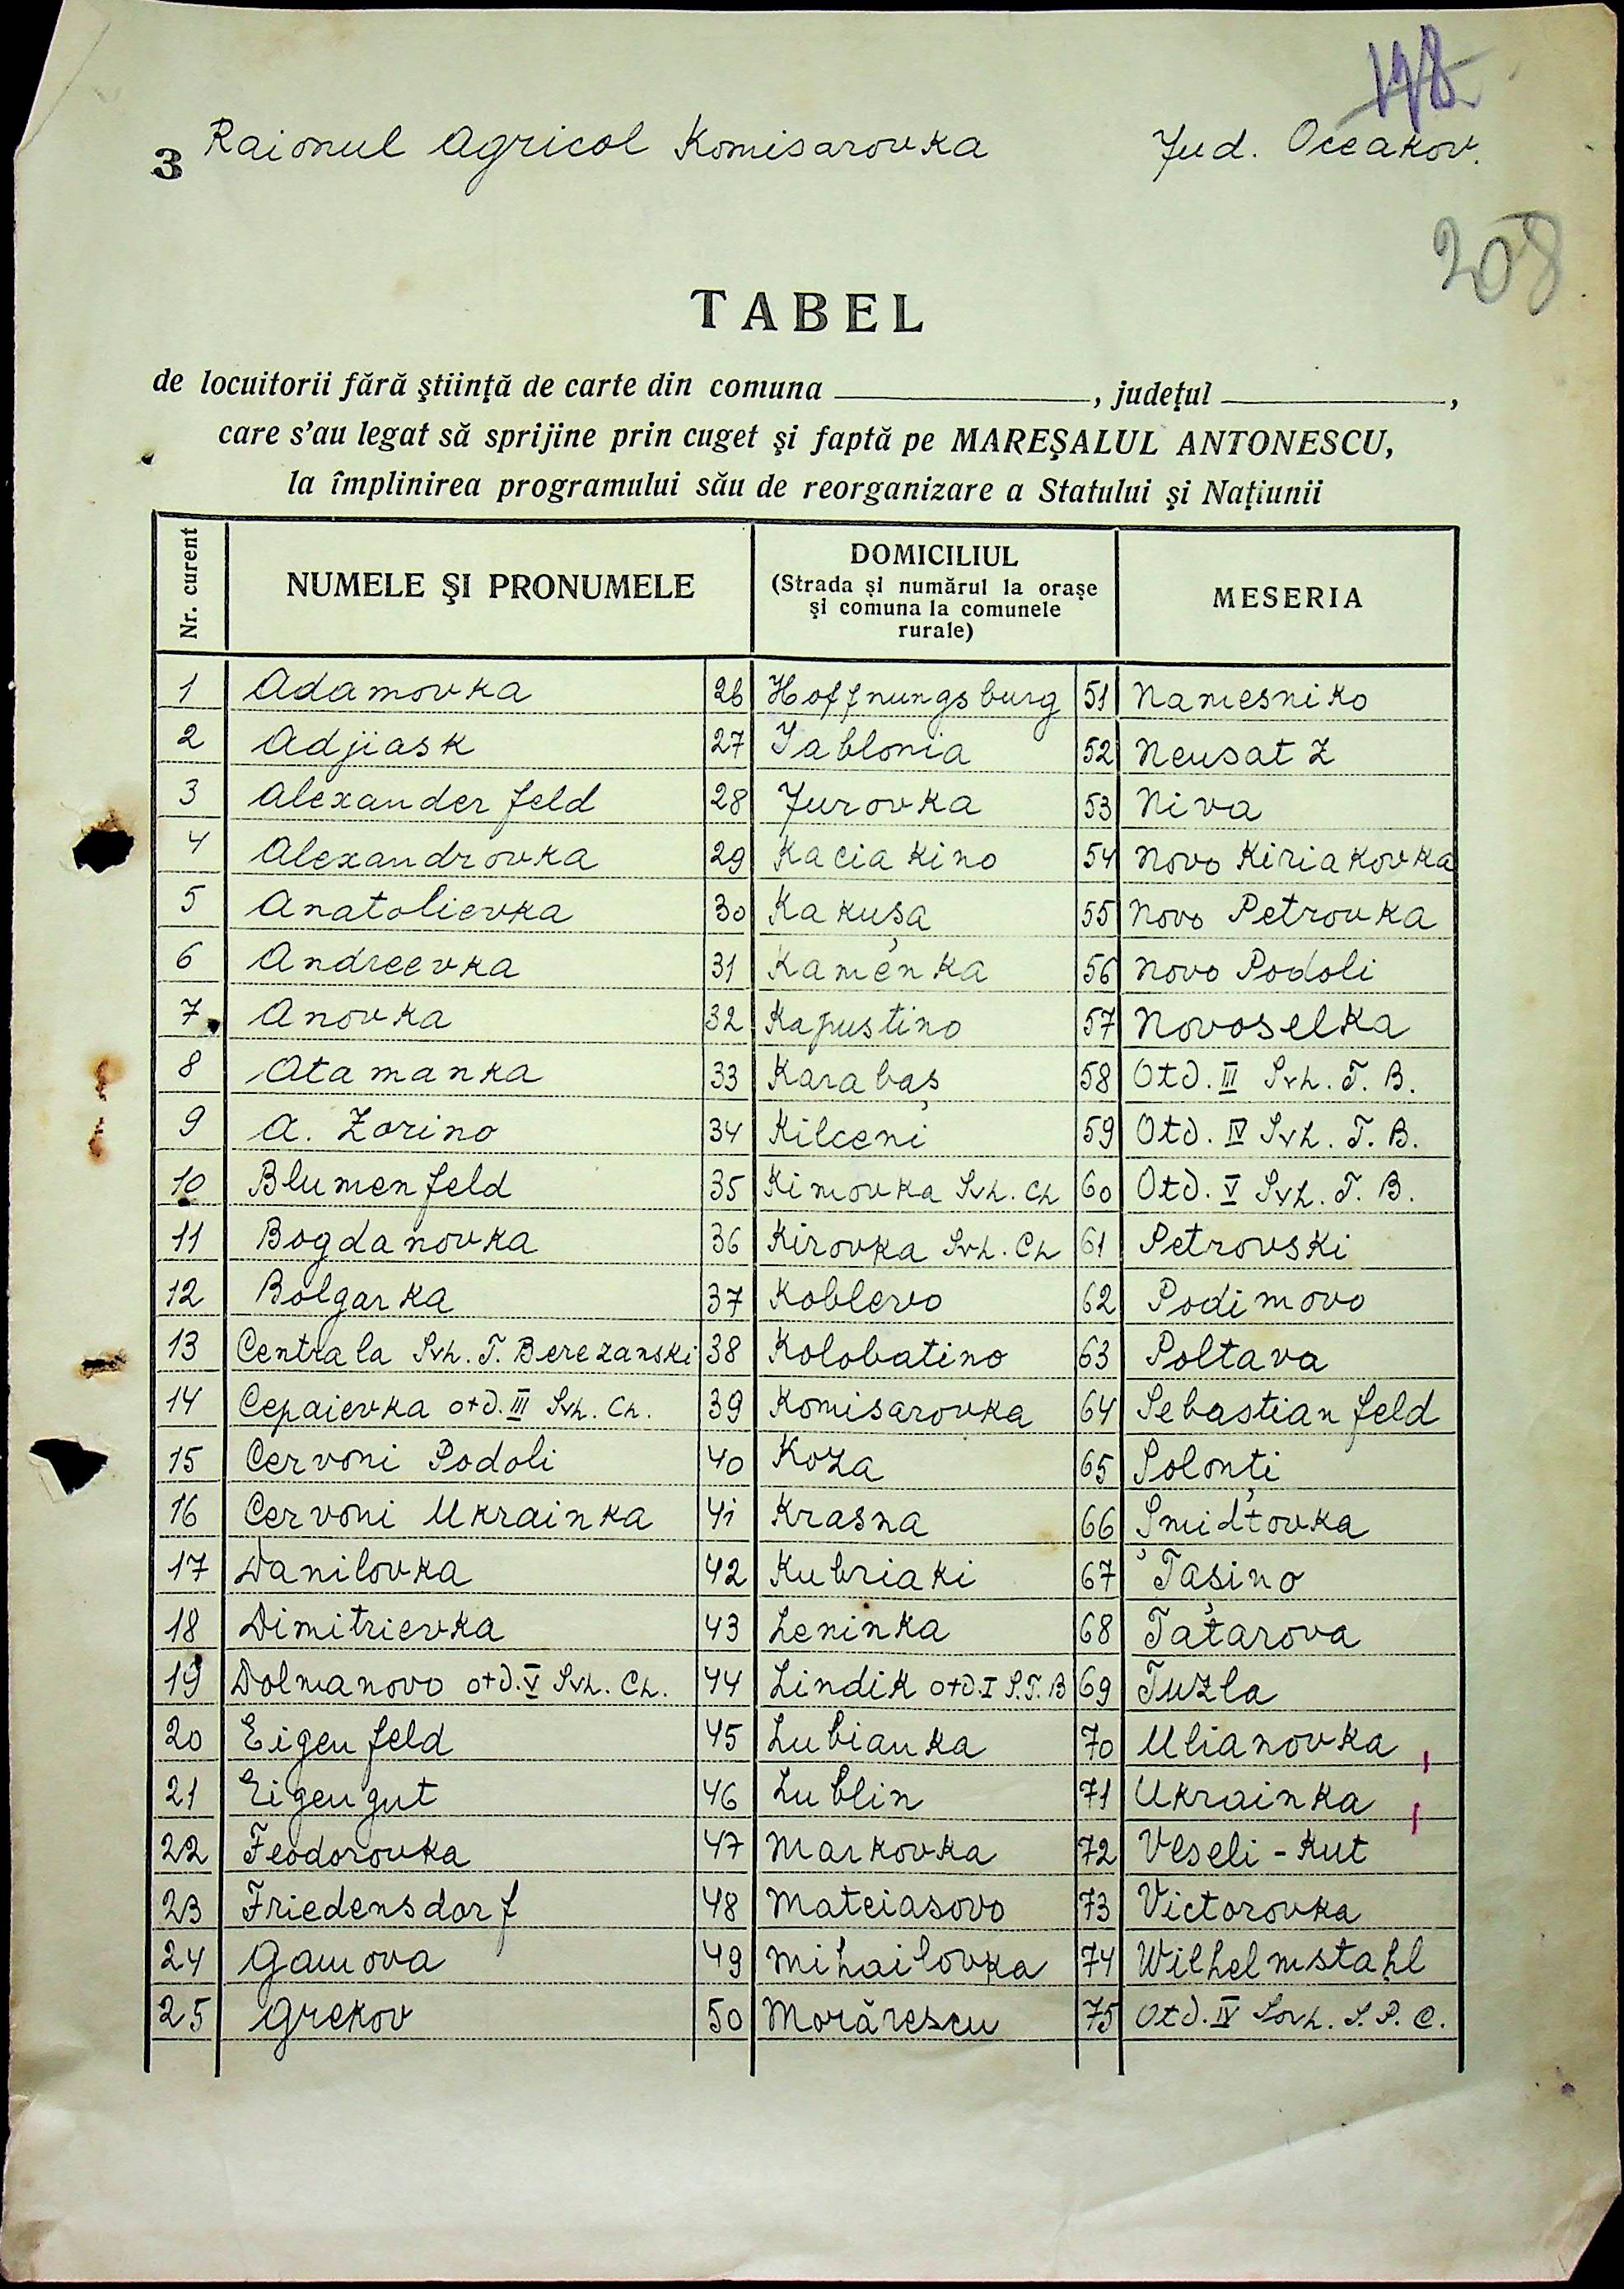 118
3 Raionul Agricol Komisarovka Jud. Oceakov.
208
TABEL
de locuitorii fără ştiinţă de carte din comuna , judeţul ,
care s'au legat să sprijine prin cuget şi faptă pe MAREŞALUL ANTONESCU,
la împlinirea programului său de reorganizare a Statului şi Naţiunii
Nr. curent NUMELE ŞI PRONUMELE DOMICILIUL (Strada şi numărul la oraşe şi comuna la comunele rurale) MESERIA
1 Adamovka 26 Hoffnungsburg 51 Namesniko
2 Adjiask 27 Iablonia 52 Neusatz
3 Alexanderfeld 28 Jurovka 53 Niva
4 Alexandrovka 29 Kaciakino 54 Novo Kiriakovka
5 Anatolievka 30 Kakuşa 55 Novo Petrovka
6 Andreevka 31 Kamenka 56 Novo Podoli
7 Anovka 32 Kapustino 57 Novoselka
8 Atamanka 33 Karabaş 58 Otd. III Svh. T. B.
9 A. Zorino 34 Kilceni 59 Otd. IV Svh. T. B.
10 Blumenfeld 35 Kimovka Svh. Ch 60 Otd. V Svh. T. B.
11 Bogdanovka 36 Kirovka Svh. Ch 61 Petrovski
12 Bolgarka 37 Koblevo 62 Podimovo
13 Centrala Svh. T. Berezanski 38 Kolobatino 63 Poltava
14 Cepaievka otd. III Svh. Ch. 39 Komisarovka 64 Sebastianfeld
15 Cervoni Podoli 40 Koza 65 Solonţi
16 Cervoni Ukrainka 41 Krasna 66 Şmidtovka
17 Danilovka 42 Kubriaki 67 Taşino
18 Dimitrievka 43 Leninka 68 Tatarova
19 Dolmanovo otd. V Svh. Ch. 44 Lindik otd. I S.T.B 69 Tuzla
20 Eigenfeld 45 Lubianka 70 Ulianovka
21 Eigengut 46 Lublin 71 Ukrainka
22 Feodorovka 47 Markovka 72 Veseli-Kut
23 Friedensdorf 48 Mateiasovo 73 Victorovka
24 Gamova 49 Mihailovka 74 Wilhelmstahl
25 Grekov 50 Morărescu 75 Otd. IV Sovh. S. P. C.